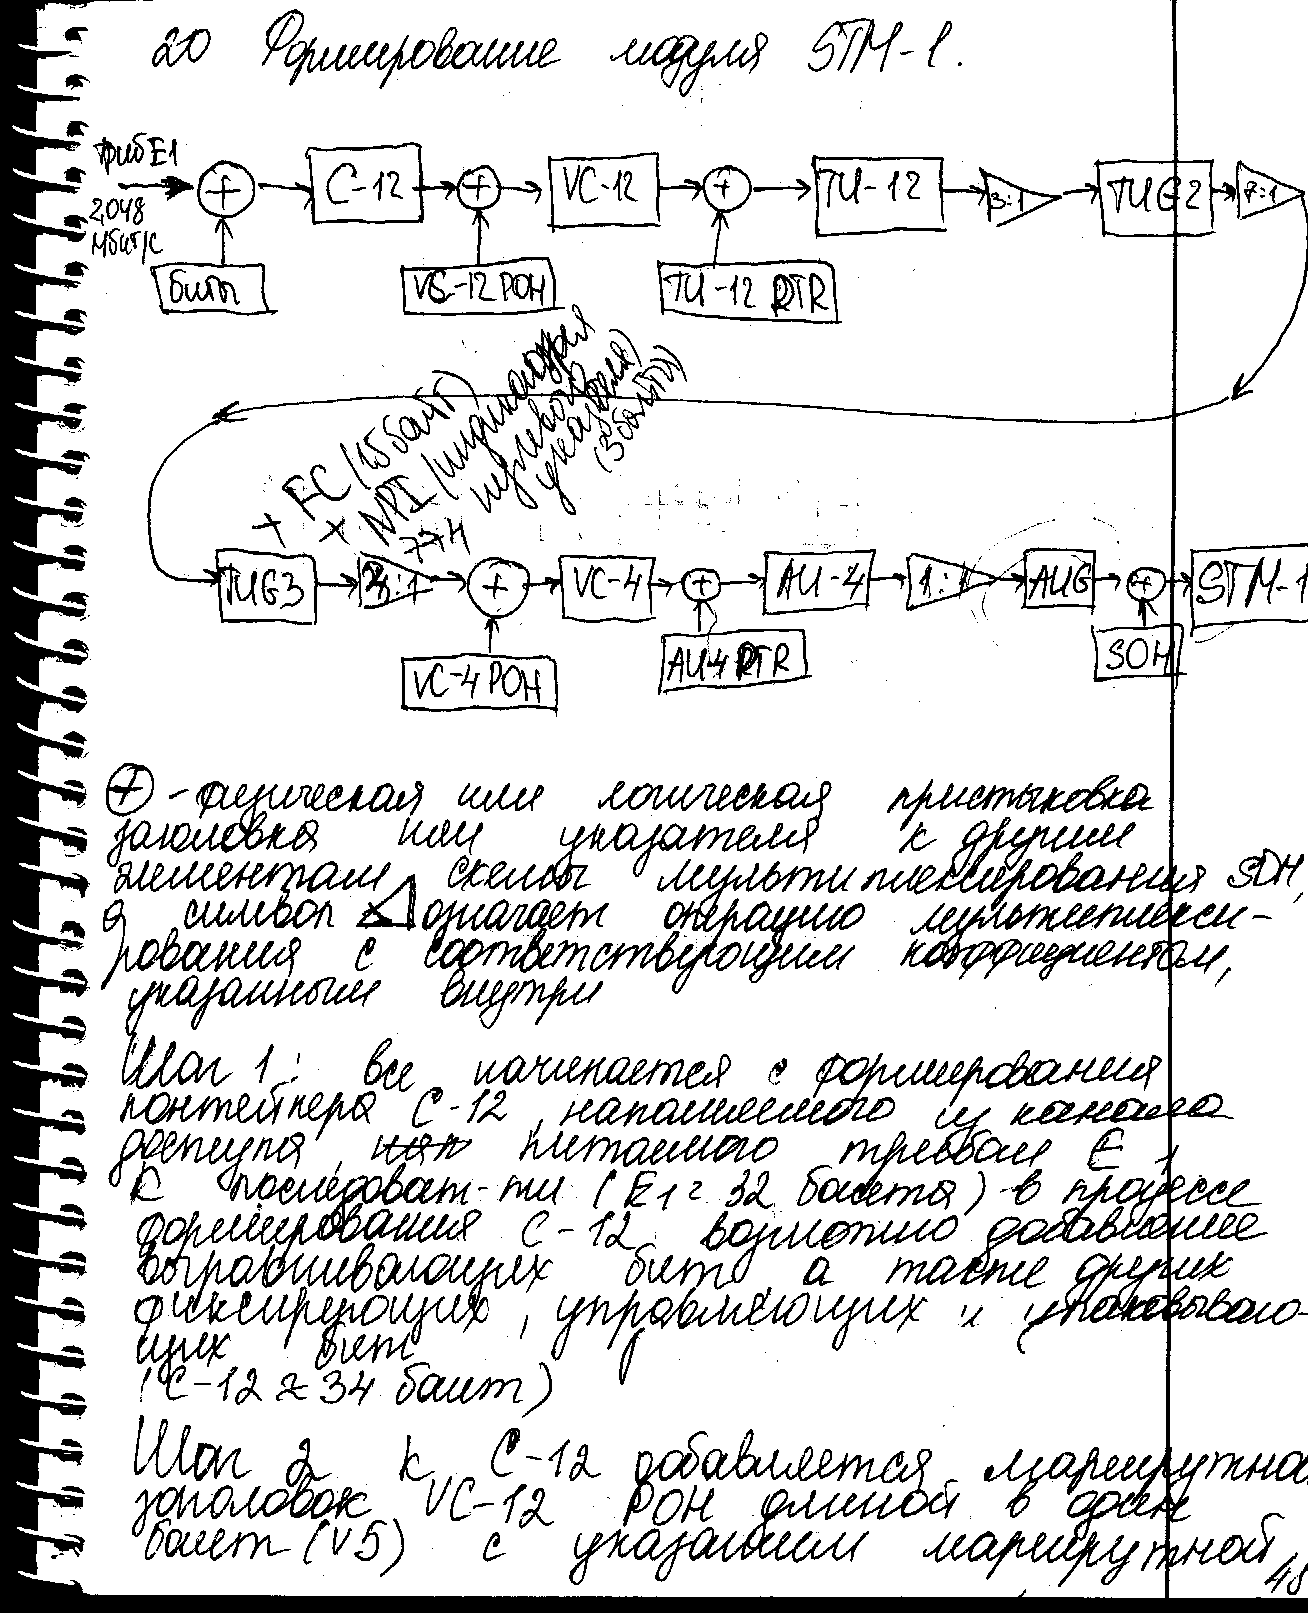 20 Формирование модуля STM-1.
триб E1
2,048
Мбит/с
C-12
VC-12
TU-12
3:1
TUG2
7:1
биты
VC-12 POH
TU-12 PTR
+ FC (15 байт)
+ NPI (индикация
нулевого
указателя)
(3 байта)
774
TUG3
3:1
VC-4
AU-4
1:1
AUG
STM-1
VC-4 POH
AU-4 PTR
SOH
⊕ - физическая или логическая пристыковка
заголовка или указателя к другим
элементам схемы мультиплексирования SDH,
а символ ◁ означает операцию мультиплекси-
рования с соответствующим коэффициентом,
указанным внутри
Шаг 1: все начинается с формирования
контейнера C-12, наполняемого из канала
доступа, питаемого трибом E1,
К последоват-ти (E1 = 32 байта) в процессе
формирования C-12 возможно добавление
выравнивающих бит, а также других
фиксирующих, управляющих и упаковываю-
щих бит
(C-12 ≈ 34 байт)
Шаг 2 к C-12 добавляется маршрутный
заголовок VC-12 POH длиной в один
байт (V5) с указанием маршрутной
48